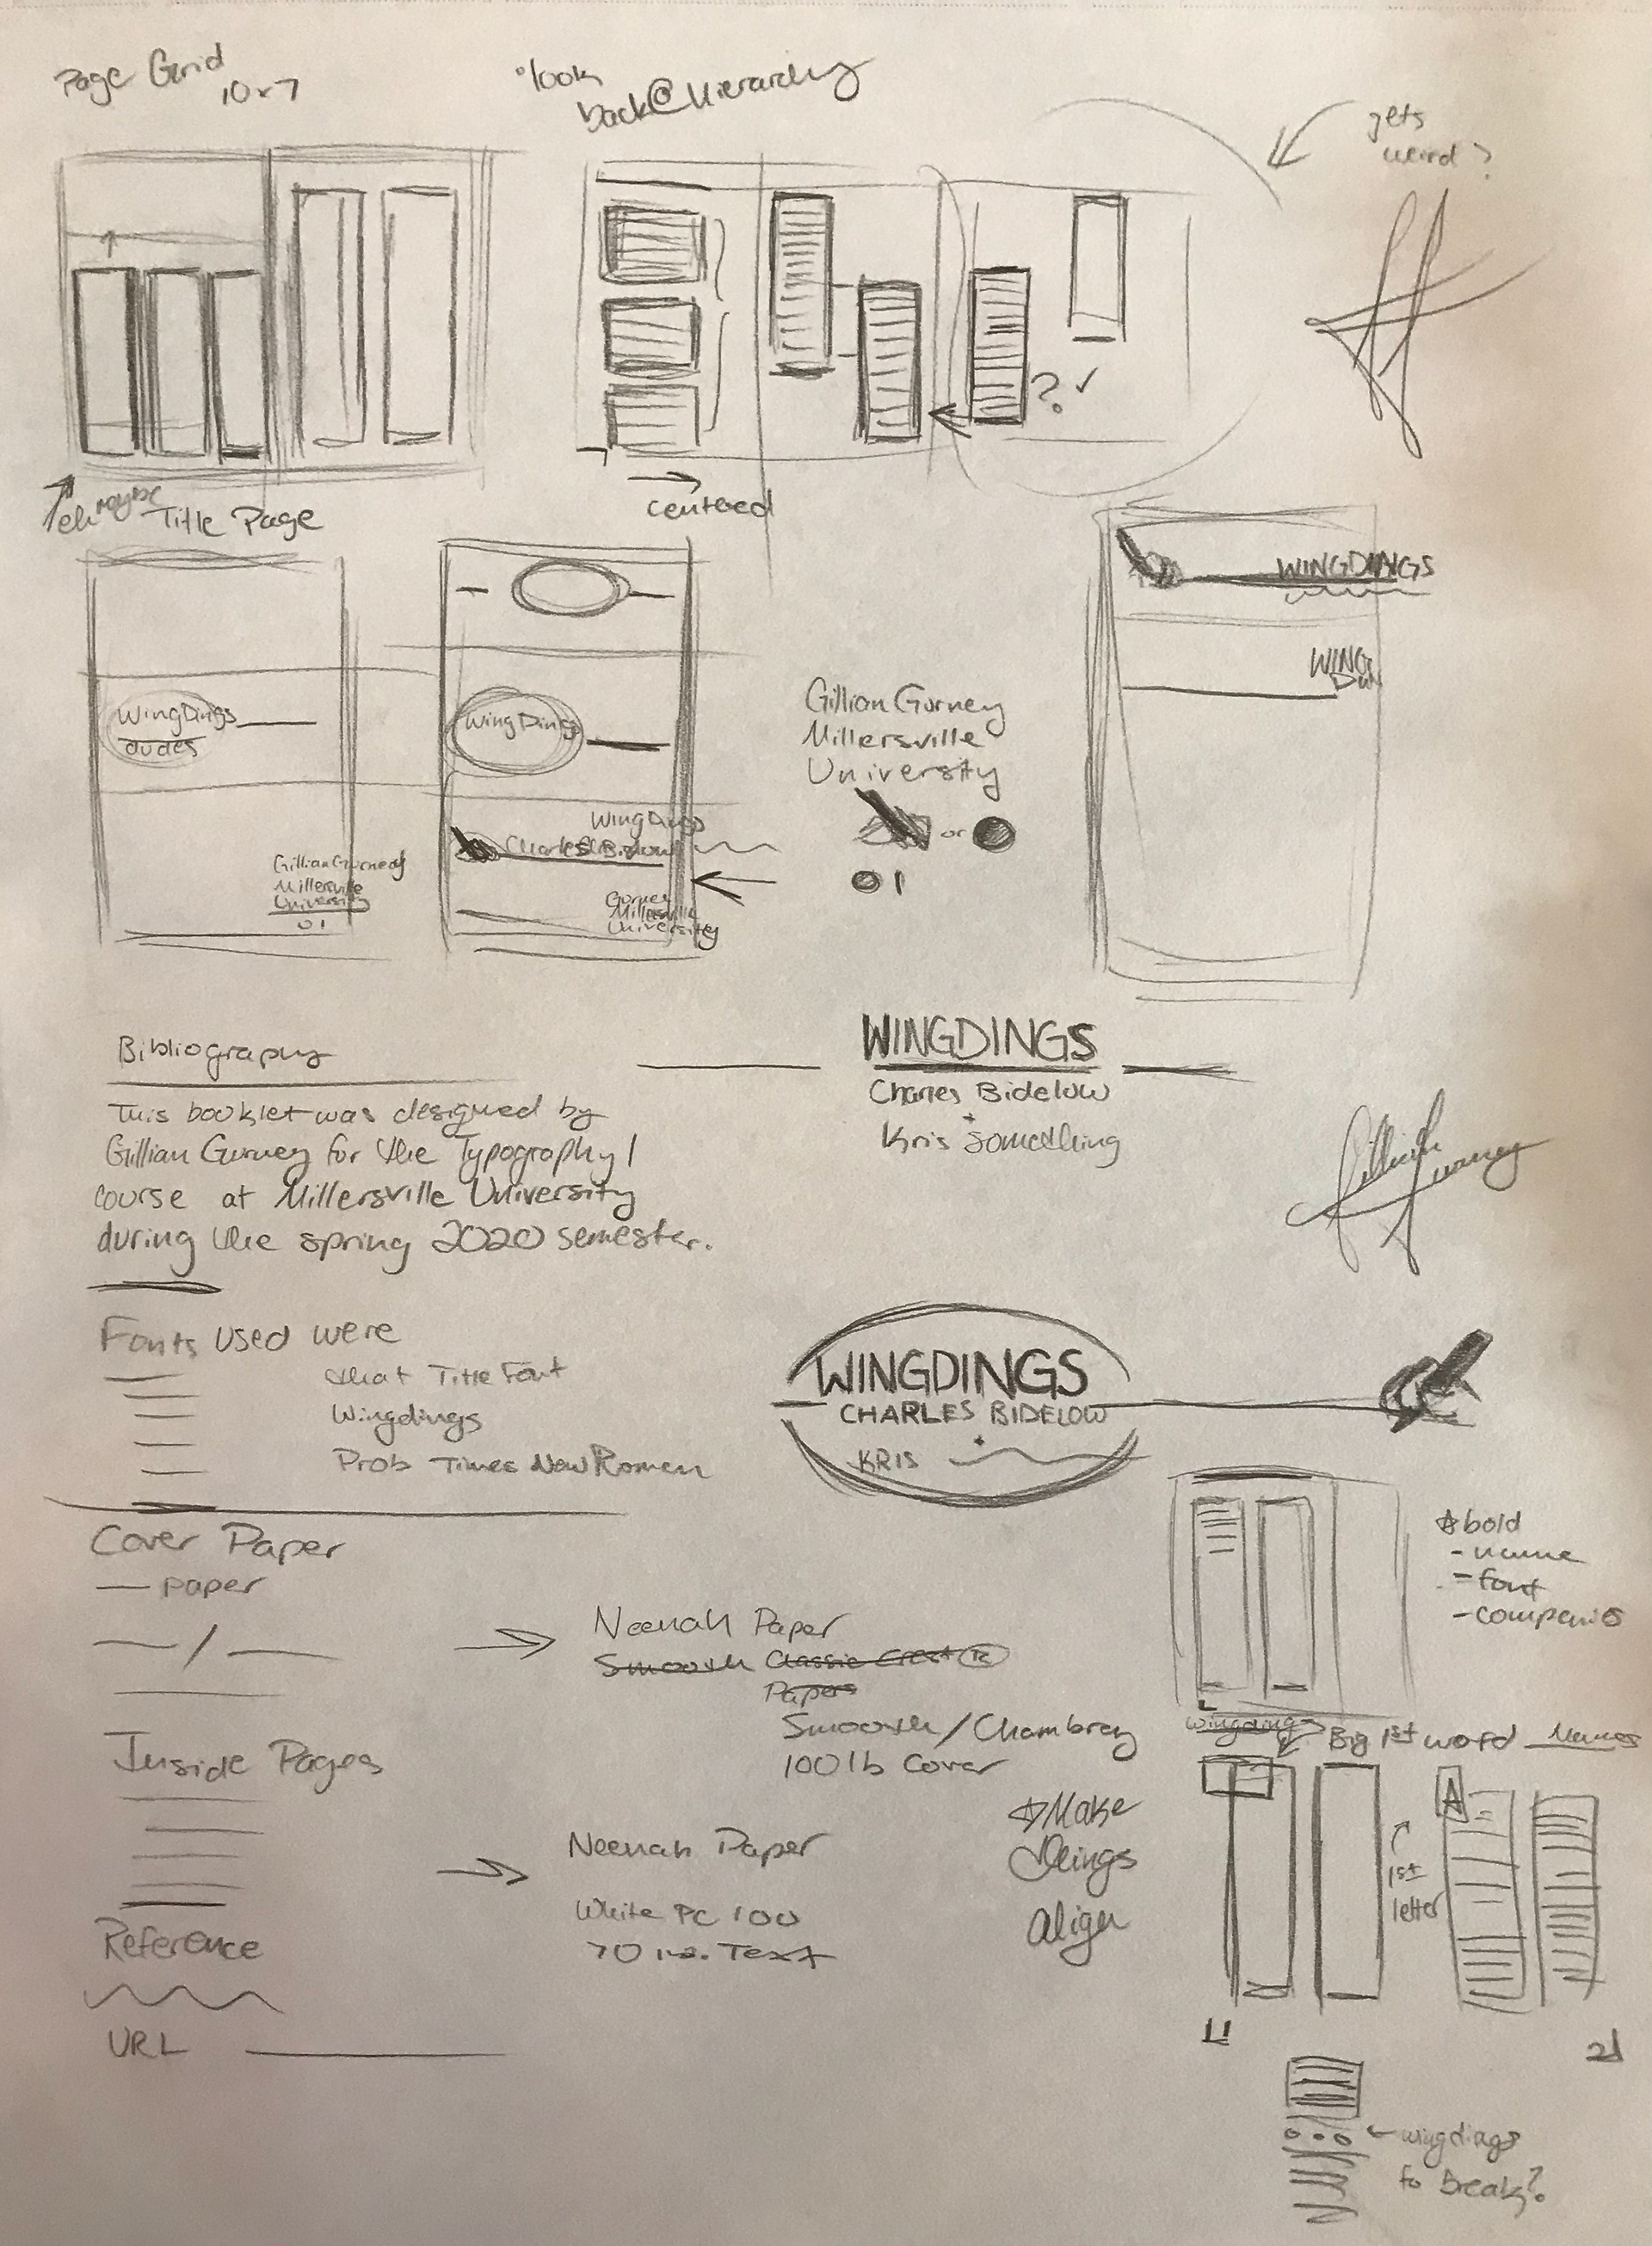 Page Grid
10x7
look
back@Hierarchy
gets
weird?
? ✓
eh maybe
Title Page
centered
WingDings
dudes
Gillian Gurney
Millersville
University
01
WingDings
WingDings
Charles Bidelow
Gurney
Millersville
University
Gillian Gurney
Millersville
University
or
01
WINGDINGS
WING
Bibliography
This booklet was designed by
Gillian Gurney for the Typography 1
course at Millersville University
during the spring 2020 semester.
WINGDINGS
Charles Bidelow
+
Kris Something
Gillian Gurney
Fonts used were
that Title Font
Wingdings
Prob Times New Roman
WINGDINGS
CHARLES BIDELOW
+
KRIS
Cover Paper
— paper
— / —
Neenah Paper
Smooth Classic Crest ®
Papers
Smooth/Chambray
100 lb Cover
☆ bold
- name
- font
- companies
Inside Pages
Neenah Paper
White PC 100
70 Text
☆ Make
things
align
wingdings
Big 1st word
Names
A
1st
letter
Reference
URL
wingdings
to Break?